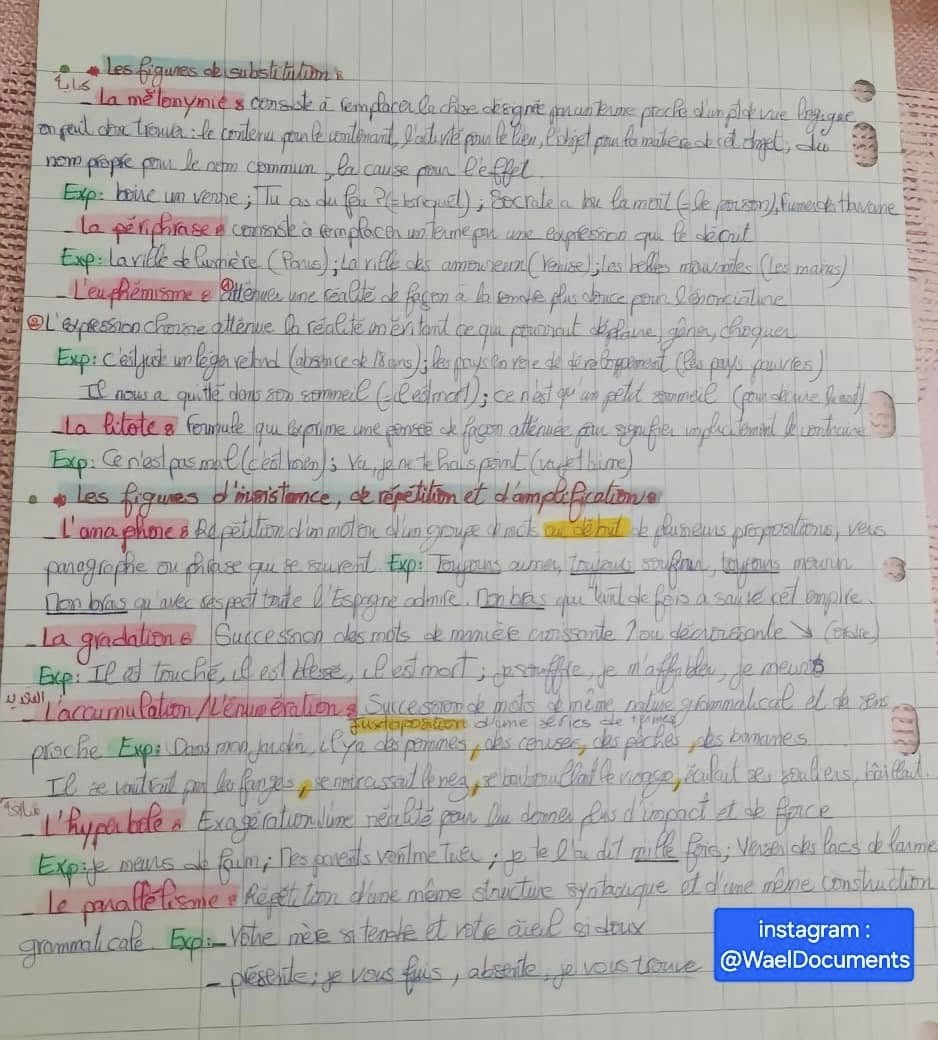 Les figures de substitution :
كناية
- La métonymie : consiste à remplacer la chose désignée par un terme proche d'un pt de vue logique
on peut donc trouver : le contenu pour le contenant, l'activité pour le lieu, l'objet pour la matière de cet objet, du
nom propre pour le nom commun, la cause pour l'effet.
Exp: boire un verre ; Tu as du feu ? (= briquet) ; Socrate a bu la mort (= le poison), fumer du Havane
- La périphrase : consiste à remplacer un terme par une expression qui le décrit
Exp: La ville de lumière (Paris) ; La ville des amoureux (Venise) ; les belles mouvantes (les mains)
- L'euphémisme : ① atténuer une réalité de façon à la rendre plus douce pour
② L'expression choisie atténue la réalité en évitant ce qui pourrait déplaire, gêner, choquer
Exp: C'est juste un léger retard (absence de 18 ans) ; les pays en voie de développement (les pays pauvres)
Il nous a quitté dans son sommeil (= il est mort) ; ce n'est qu'un petit sommeil (pour décrire la mort)
- La litote : Formule qui exprime une pensée de façon atténuée pour signifier implicitement le contraire
Exp: Ce n'est pas mal (c'est bien) ; Va, je ne te hais point (va je t'aime)
Les figures d'insistance, de répétition et d'amplification :
- L'anaphore : Répétition d'un mot ou d'un groupe de mots au début de plusieurs propositions, vers
paragraphe ou phrase qui se suivent. Exp: Toujours aimer, Toujours souffrir, toujours mourir
Mon bras qu'avec respect toute l'Espagne admire. Mon bras qui tant de fois a sauvé cet empire.
- La gradation : Succession des mots de manière croissante ↗ ou décroissante ↘ (ordre)
Exp: Il est touché, il est blessé, il est mort ; j'étouffe, je m'affaiblis, je meurs
- L'accumulation/L'énumération : Succession de mots de même nature grammatical et de sens
juxtaposition d'une séries de termes
proche Exp: Dans mon jardin, il y a des pommes, des cerises, des pêches, des bananes
Il se vautrait par les fanges, se mascarait le nez, se barbouillait le visage, éculait ses souliers, bâillait.
- L'hyperbole : Exagération d'une réalité pour lui donner plus d'impact et de force
Exp: je meurs de faim ; mes parents vont me tuer ; je te l'ai dit mille fois ; Verser des lacs de larme
- Le parallélisme : Répétition d'une même structure syntaxique et d'une même construction
grammaticale. Exp: - Votre mère si tendre et votre aïeul si doux
- présente ; je vous fuis, absente, je vous trouve
instagram :
@WaelDocuments